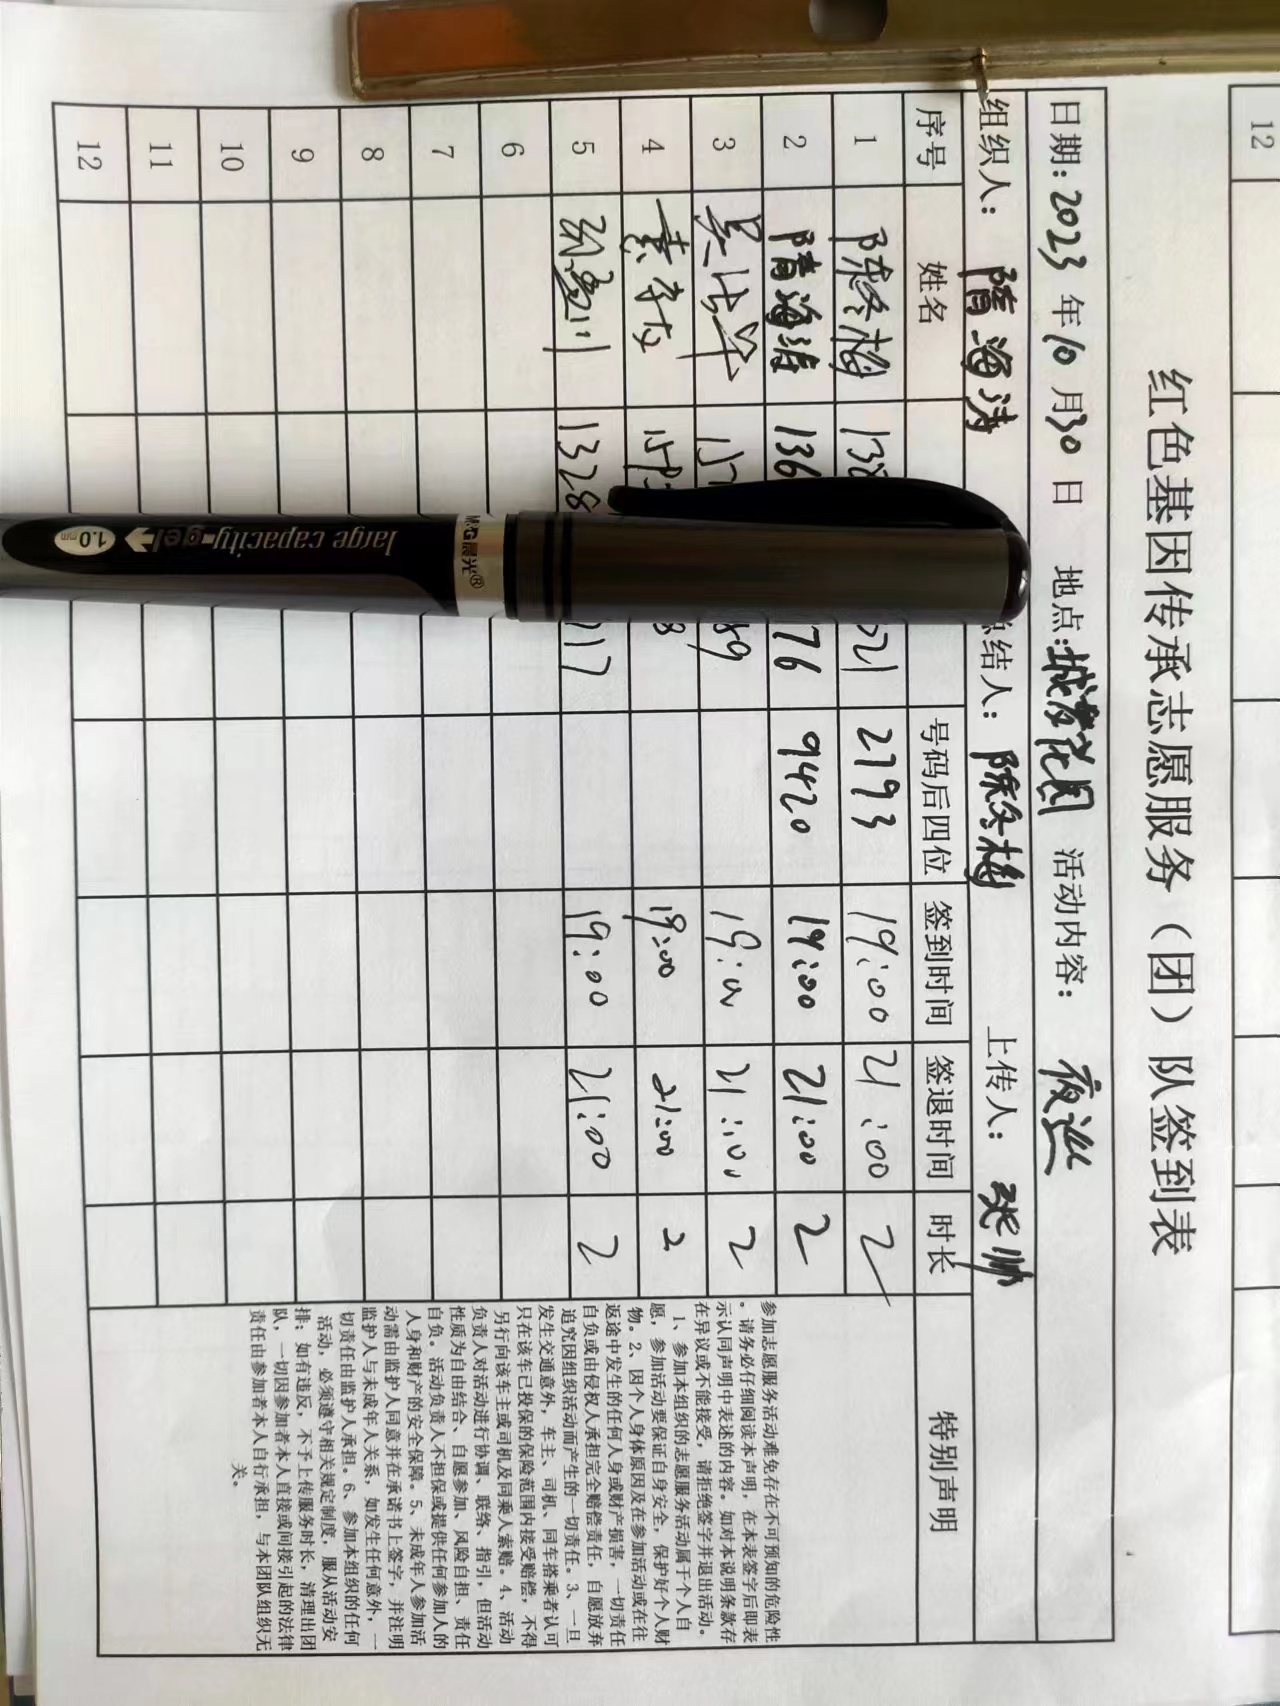 红色基因传承志愿服务（团）队签到表
日期：2023 年 10 月 30 日 地点： 花园 活动内容： 夜巡
组织人： 隋海涛 结人： 陈冬梅 上传人： 张帅
序号 姓名 号码后四位 签到时间 签退时间 时长 特别声明
1 陈冬梅 138 521 2793 19:00 21:00 2
2 隋海涛 136 76 9420 19:00 21:00 2
3 157 89 19:00 21:00 2
4 159 8 19:00 21:00 2
5 1328 717 19:00 21:00 2
6
7
8
9
10
11
12
参加志愿服务活动难免存在不可预知的危险性
。请务必仔细阅读本声明，在本表签字后即表
示认同声明中表述的内容。如对本说明条款存
在异议或不能接受，请拒绝签字并退出活动。
1、参加本组织的志愿服务活动属于个人自
愿，参加活动要保证自身安全，保护好个人财
物。2、因个人身体原因及在参加活动或在往
返途中发生的任何人身或财产损害，一切责任
自负或由侵权人承担完全赔偿责任，自愿放弃
追究因组织活动而产生的一切责任。3、一旦
发生交通意外，车主、司机、同车搭乘者认可
只在该车已投保的保险范围内接受赔偿，不得
另行向该车主或司机及同乘人索赔。4、活动
负责人对活动进行协调、联络、指引，但活动
性质为自由结合、自愿参加、风险自担、责任
自负。活动负责人不担保或提供任何参加人的
人身和财产的安全保障。5、未成年人参加活
动需由监护人同意并在承诺书上签字，并注明
监护人与未成年人关系，如发生任何意外，一
切责任由监护人承担。6、参加本组织的任何
活动，必须遵守相关规定制度，服从活动安
排；如有违反，不予上传服务时长，清理出团
队，一切因参加者本人直接或间接引起的法律
责任由参加者本人自行承担，与本团队组织无
关。
M&G晨光®
large capacity gel
1.0mm
12